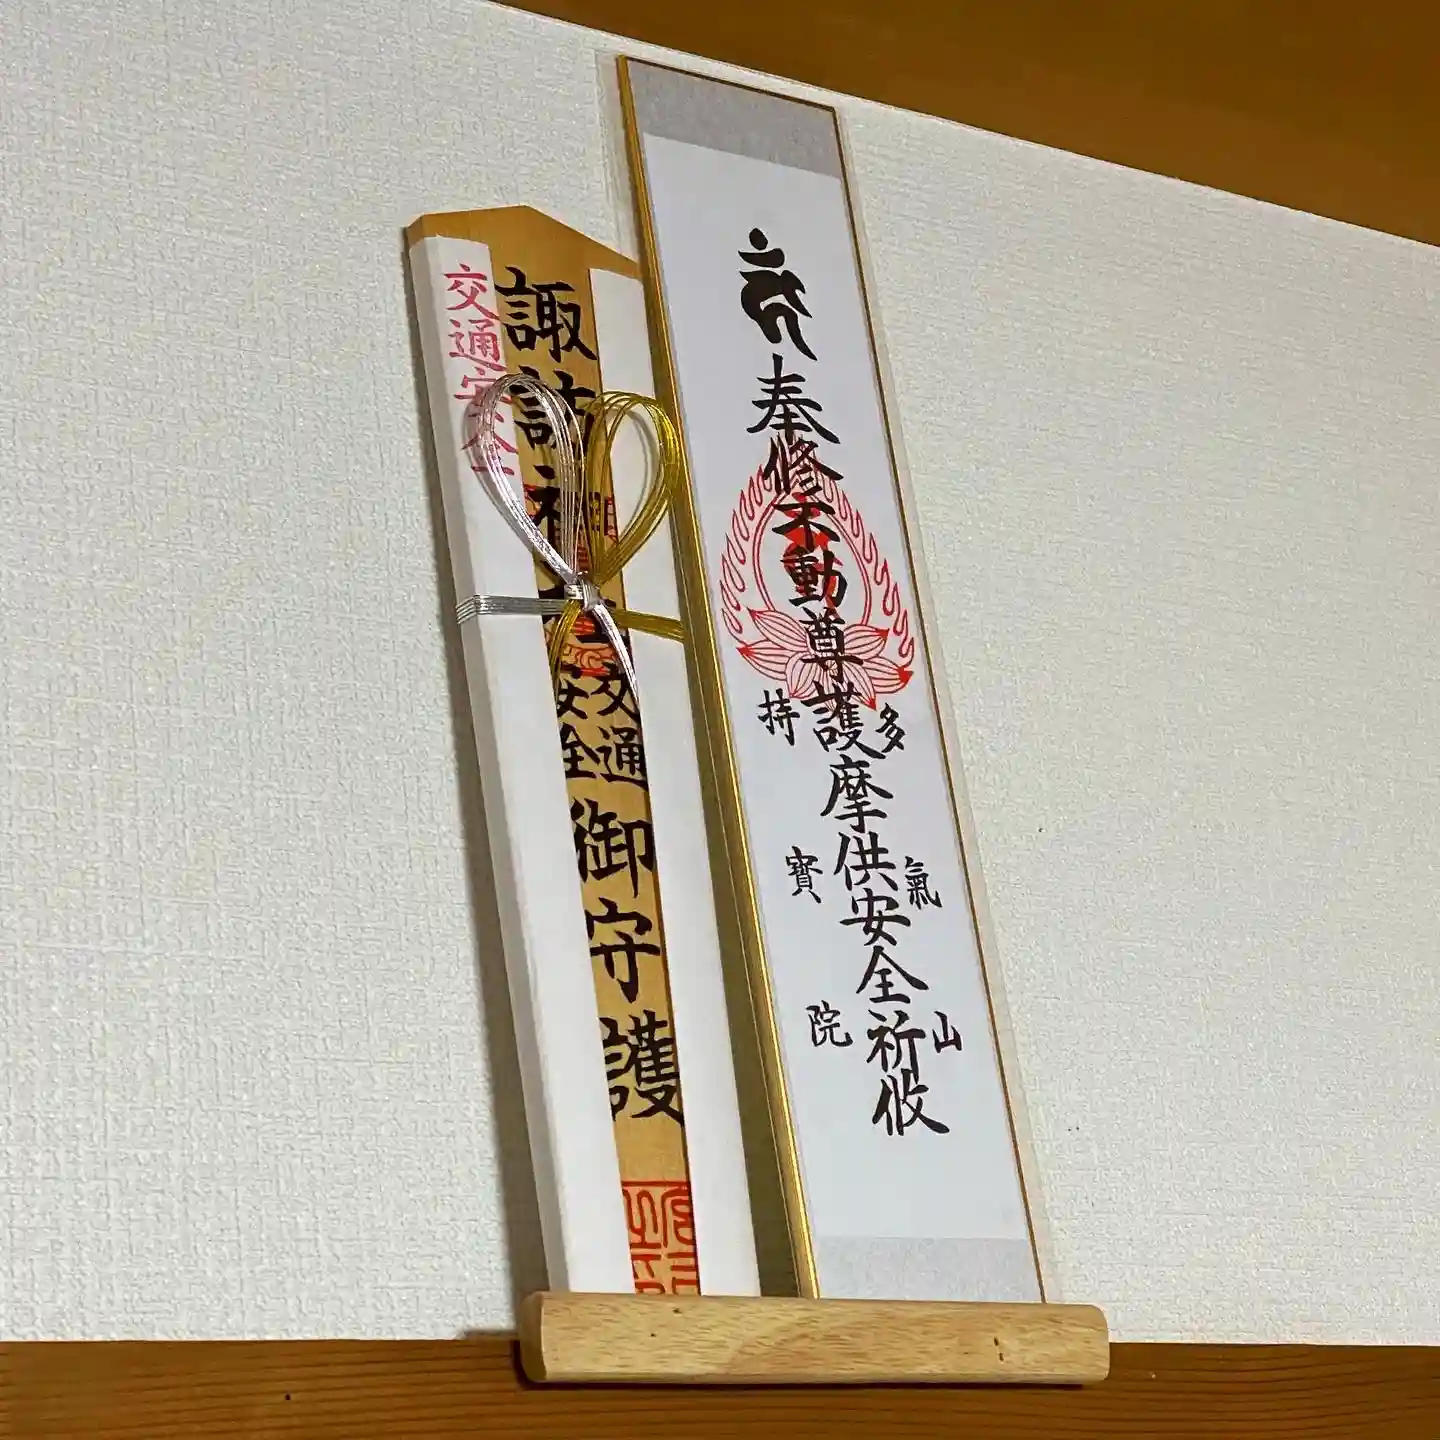 交通安全
諏訪神社
交通
安全
御守護
奉修不動尊護摩供安全祈攸
多氣山
持寶院